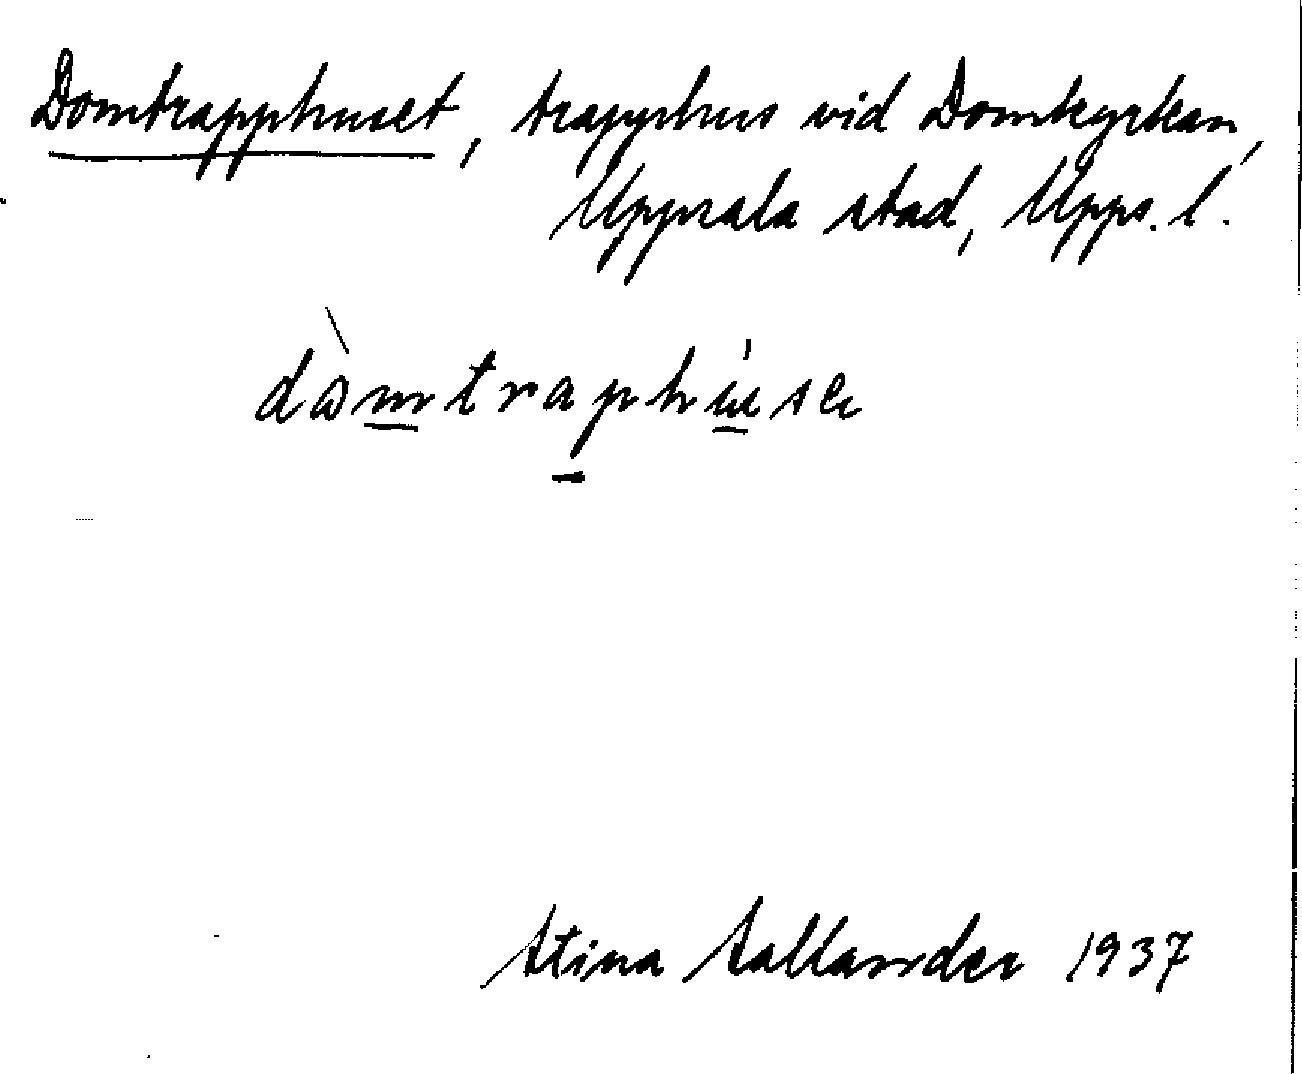 Domtrapphuset, trapphus vid Domkyrkan,
Uppsala stad, Upps. l.
dòmtraphúse
Stina Sallander 1937